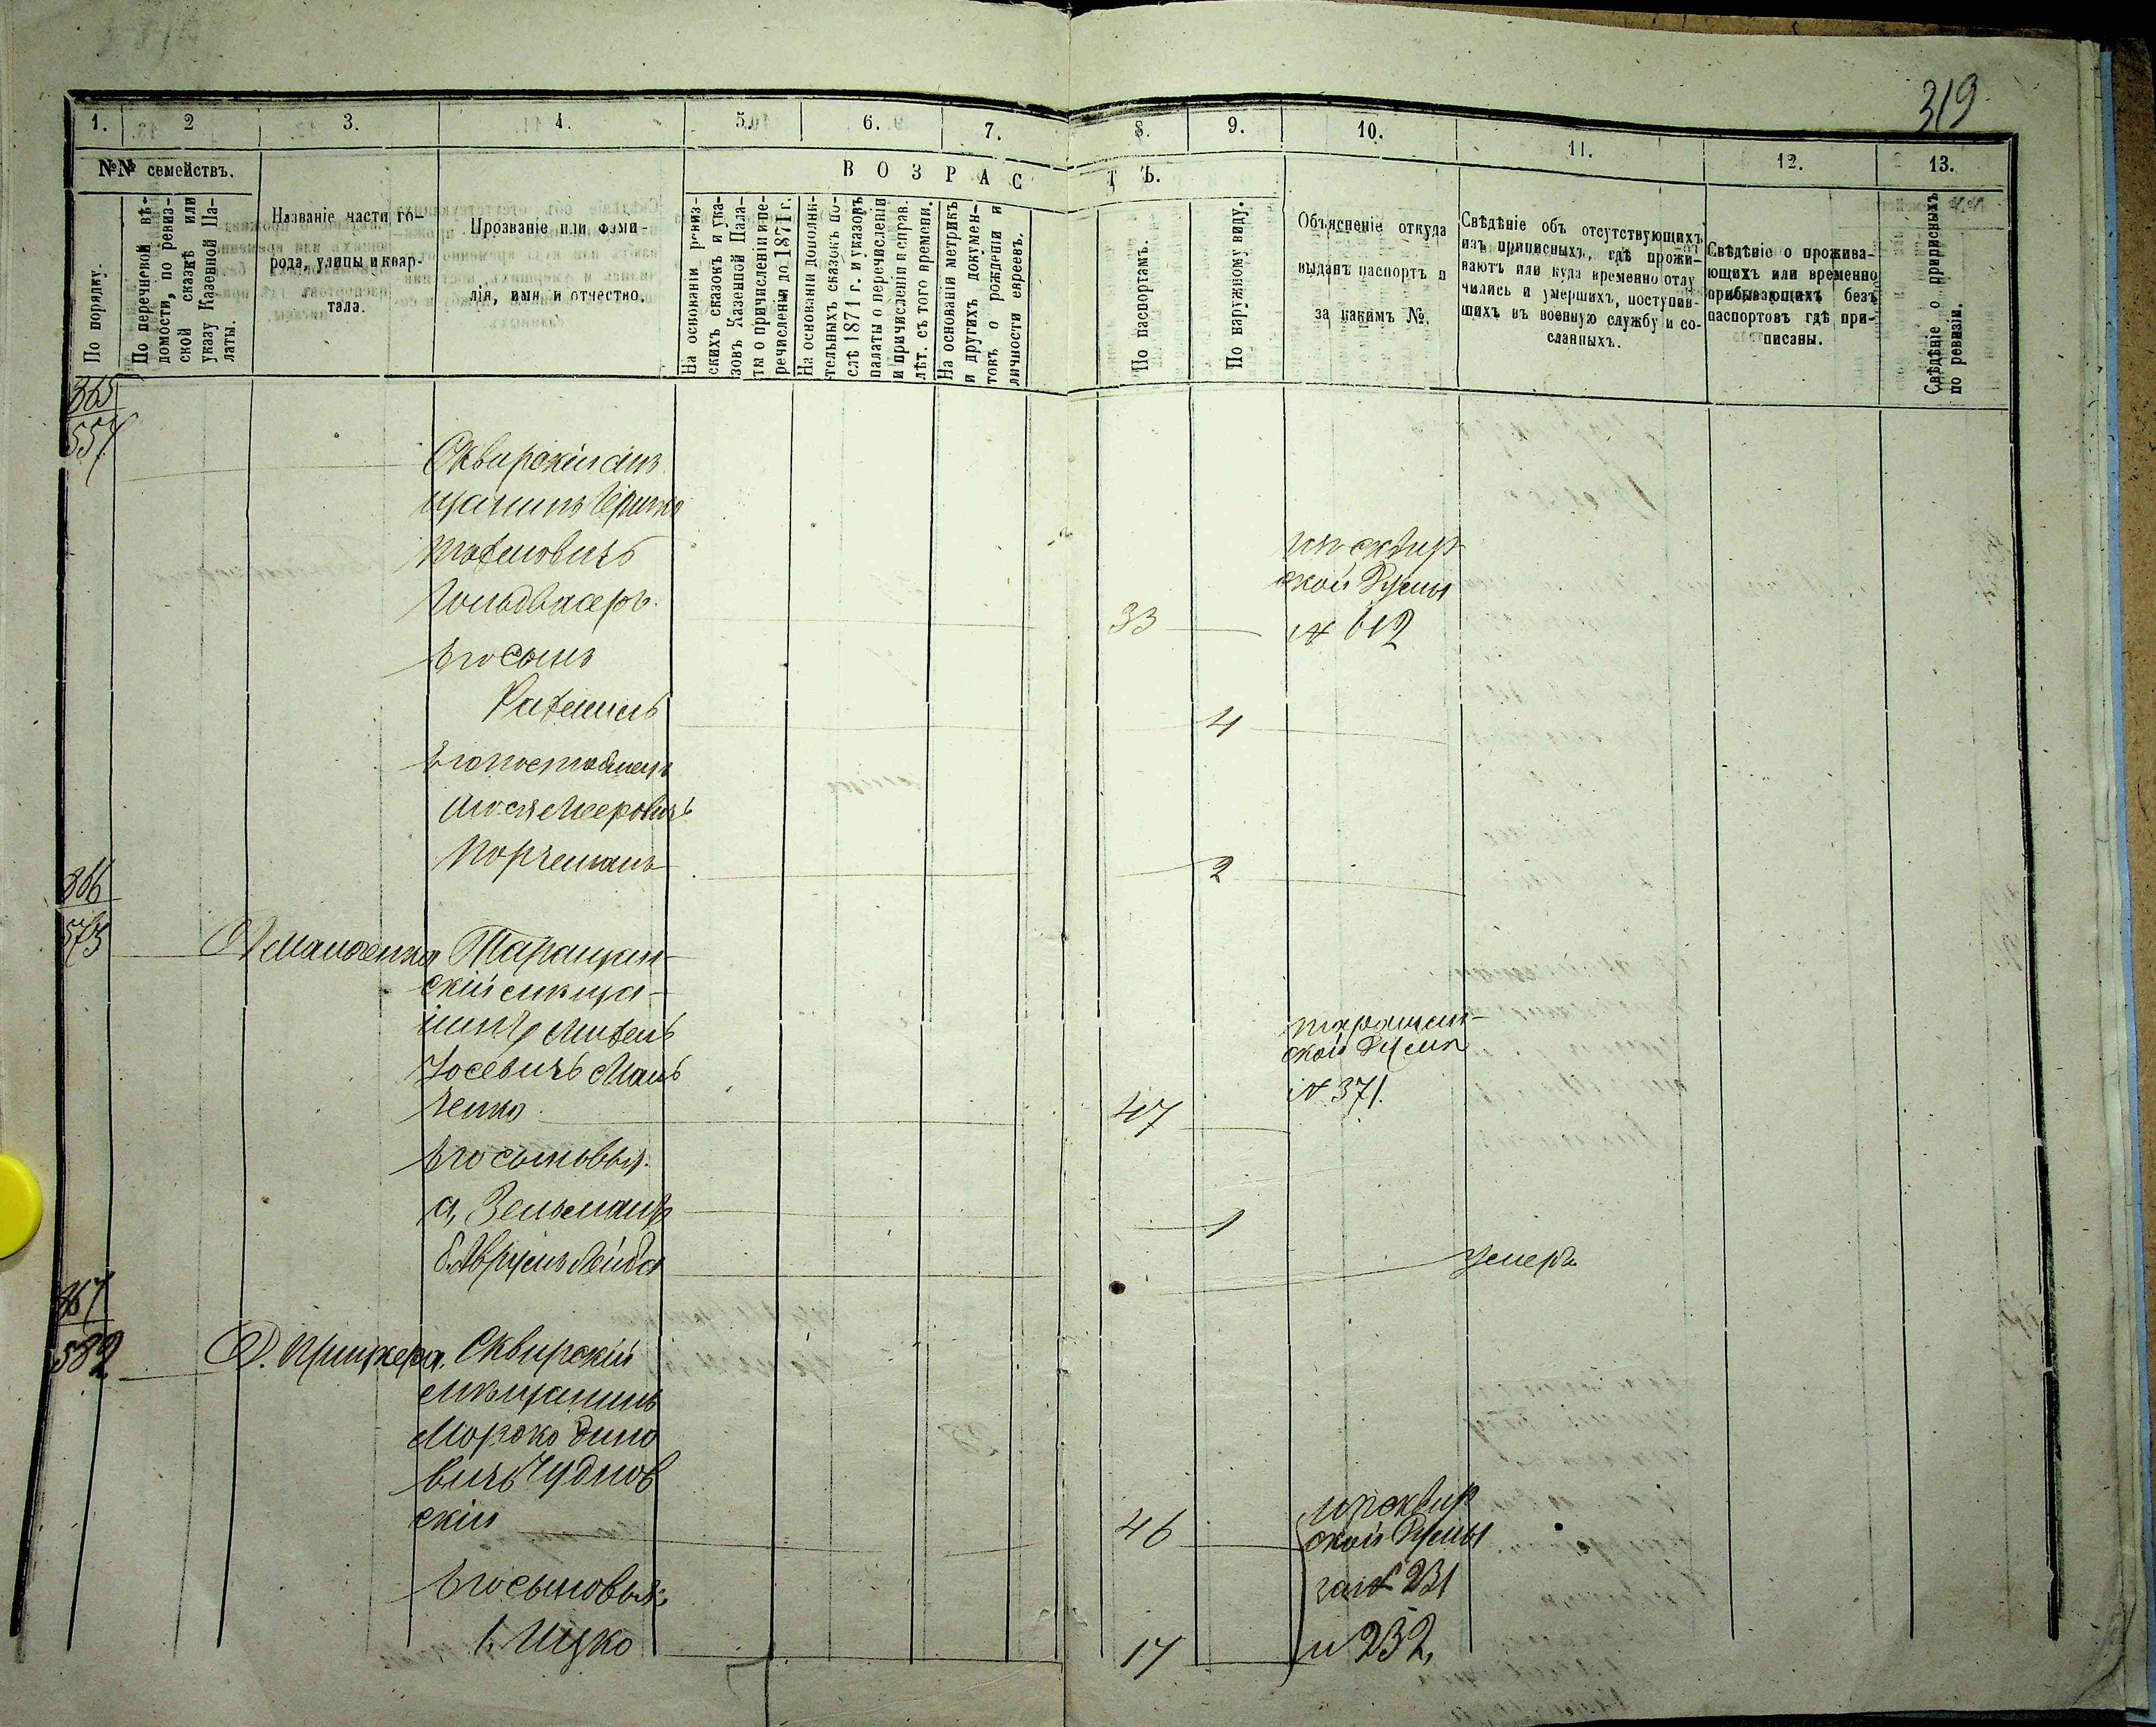 319
1. 2 3. 4. 5. 6. 7. 8. 9. 10. 11. 12. 13.
№№ семействъ.
В О З Р А С Т Ъ.
По порядку.
По перечневой вѣ-
домости, по ревиз-
ской сказкѣ или
указу Казенной Па-
латы.
Названіе части го-
рода, улицы и квар-
тала.
Прозваніе или фами-
лія, имя и отчество.
На основаніи ревиз-
скихъ сказокъ и ука-
зовъ Казенной Пала-
ты о причисленіи и пе-
речисленіи до 1871 г.
На основаніи дополни-
тельныхъ сказокъ по-
слѣ 1871 г. и указовъ
палаты о перечисленіи
и причисленіи и справ.
лѣт. съ того времени.
На основаніи метрикъ
и другихъ докумен-
товъ о рожденіи и
личности евреевъ.
По паспортамъ.
По наружному виду.
Объясненіе откуда
выданъ паспортъ и
за какимъ №.
Свѣдѣніе объ отсутствующихъ
изъ приписныхъ, гдѣ прожи-
ваютъ или куда временно отлу
чились и умершихъ, поступив-
шихъ въ военную службу и со-
сланныхъ.
Свѣдѣніе о прожива-
ющихъ или временно
прибывающихъ безъ
паспортовъ гдѣ при-
писаны.
Свѣдѣніе о приписныхъ
по ревизіи.
865
557
Сквирскій мѣ
щанинъ Гершко
Гольдвасеръ
33
сквир
ской Думы
№ 612
Его сынъ
4
Мееровичъ
2
866
573
Таращан-
скій мѣща-
нинъ
Іосевичъ Мань
ченко
47
таращан-
ской Думы
№ 371.
Его сыновья.
а, Зельманъ
1
б, Аврумъ Лейба
умеръ
867
582
Сквирскій
мѣщанинъ
вичъ Чуднов
скій
46
сквир
ской Думы
за № 231
Его сыновья:
1, Ицко
17
и 232,